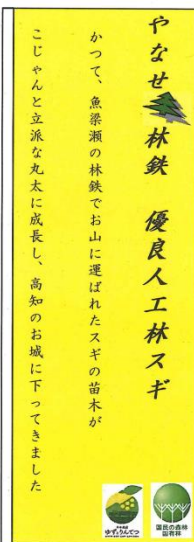 やなせ林鉄 優良人工林スギ
かつて、魚梁瀬の林鉄でお山に運ばれたスギの苗木が
こじゃんと立派な丸太に成長し、高知のお城に下ってきました
ゆずとりんてつ
国民の森林
国有林